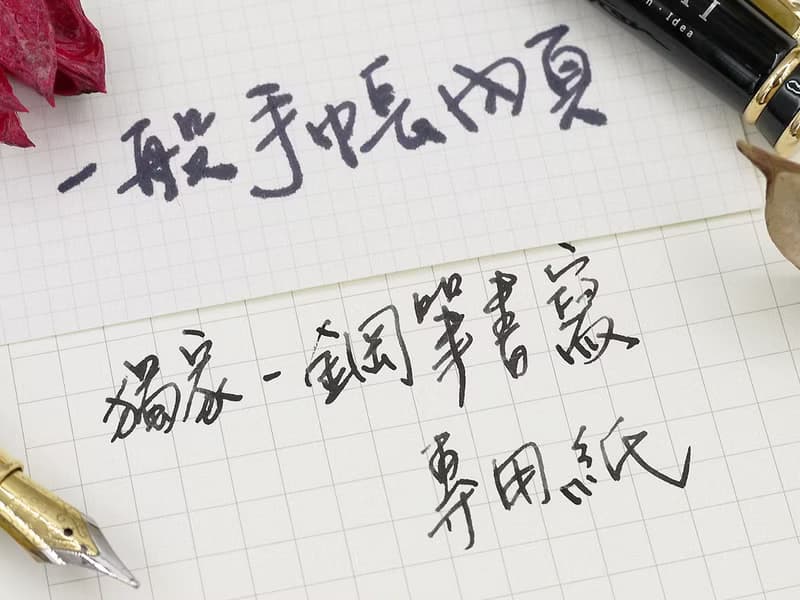 一般手帳內頁
獨家-鋼筆書寫
專用紙
n · Idea